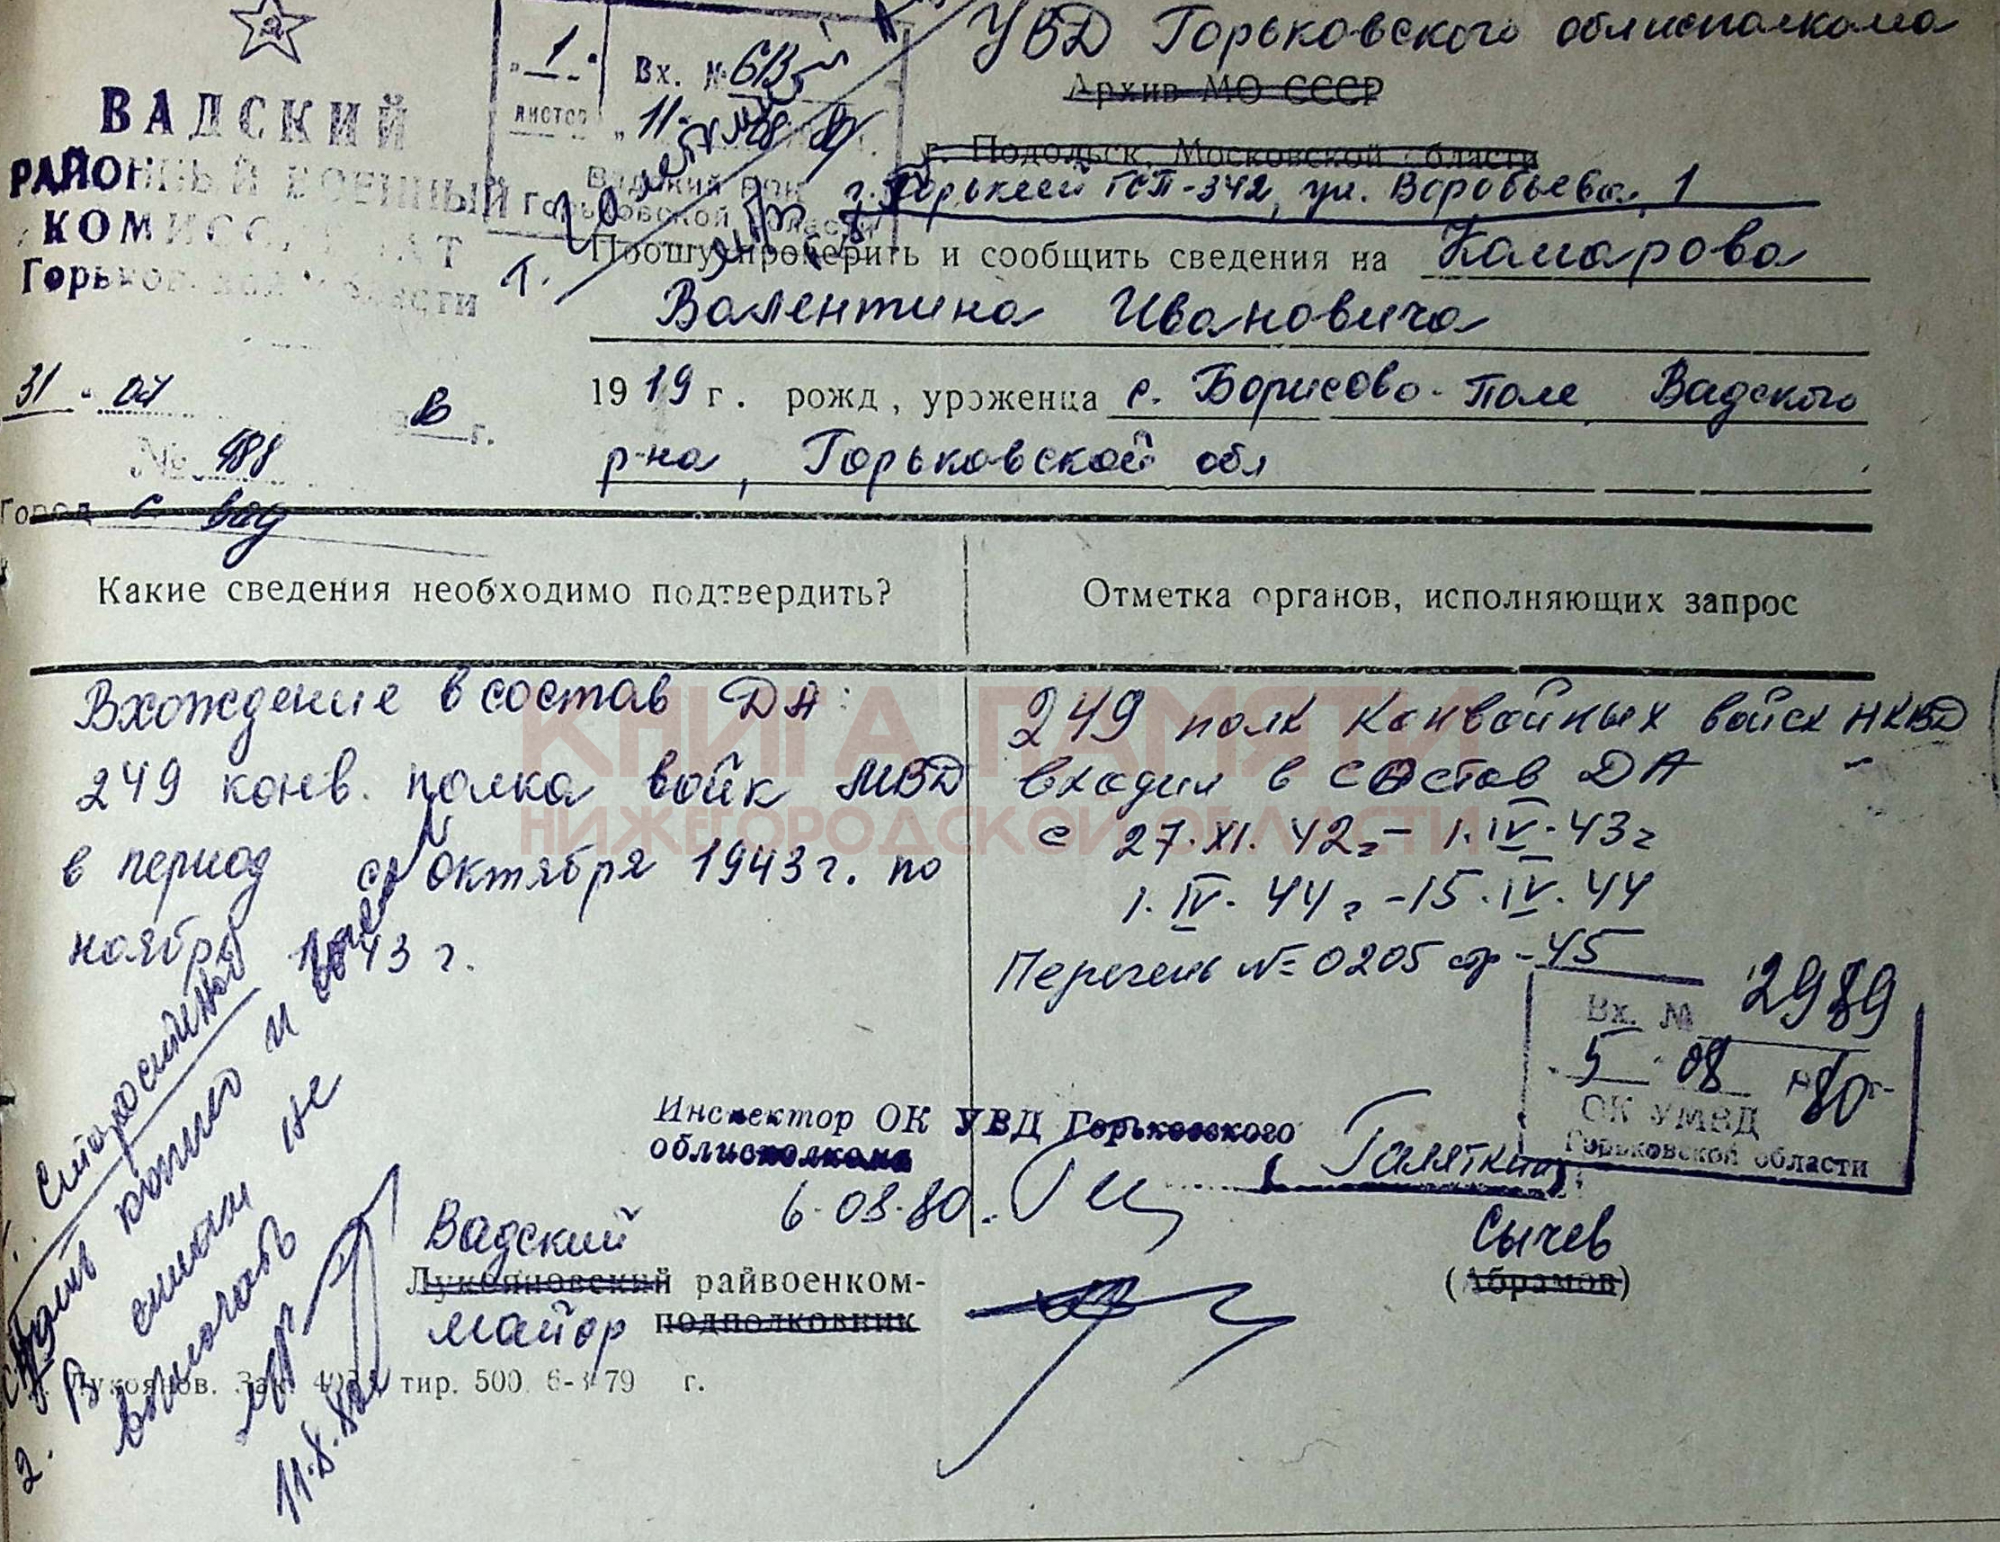 ВАДСКИЙ
РАЙОННЫЙ ВОЕННЫЙ
КОМИССАРИАТ
Горьковской области
31 04 г.
№ 488
Город с Вад
1
листов
Вх. № 613
11
Вадский РВК
Горьковской области
УВД Горьковского облисполкома
Архив МО СССР
г. Подольск, Московской области
г. Горький ГСП-342, ул. Воробьева, 1
Прошу проверить и сообщить сведения на Комарова
Валентина Ивановича
1919 г. рожд, уроженца с. Борисово-Поле Вадского
р-на, Горьковской обл
Какие сведения необходимо подтвердить?
Вхождение в состав ДА:
249 конв. полка войк МВД
в период с октября 1943 г. по
ноябрь 1943 г.
Отметка органов, исполняющих запрос
249 полк конвойных войск НКВД
входил в состав ДА
с 27.XI.42г - 1.IV.43г
1.IV.44г - 15.IV.44
Перечень №0205 стр-45
Вх. № 2989
5 08 1980 г.
ОК УМВД
Горьковской области
Инспектор ОК УВД Горьковского
облисполкома
6.08.80. Галяткин
Вадский
Лукояновский райвоенком-
майор подполковник
Сычев
(Абрамов)
Лукоянов. Зак. тир. 500 79 г.
2. В
не
включать
11.8.80г
КНИГА ПАМЯТИ
НИЖЕГОРОДСКОЙ ОБЛАСТИ